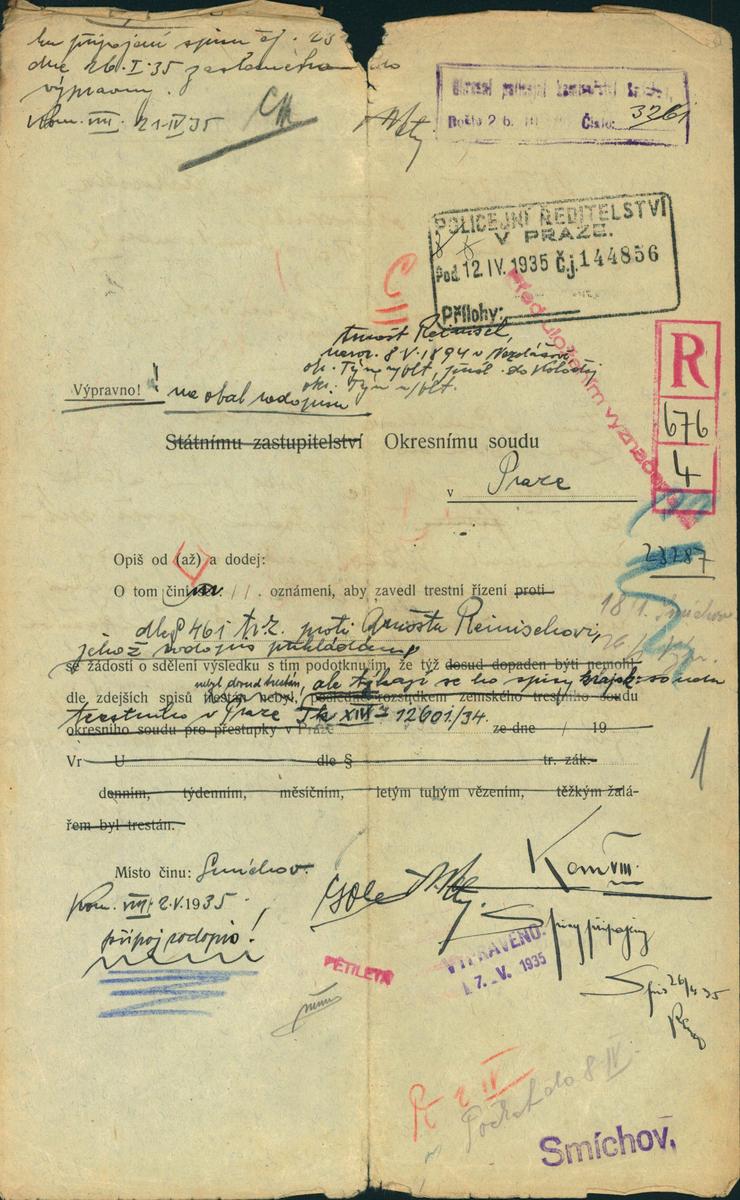 ku připojení spisu čj. 23
dne 26.I.35 zaslaného do
výpravny.
Kom. VIII. 21-IV 35
Okresní policejní komisařství Smíchov
Došlo 26. III Číslo: 3261
POLICEJNÍ ŘEDITELSTVÍ
V PRAZE.
Pod. 12. IV. 1935 Čj. 144856
Přílohy:
C II
Před uložením vyznač
Arnošt Reinisch,
naroz. 8.V.1894 v Nezdášově,
ok. Týn n/Vlt., přísl. do Koloděj
okr. Týn n/Vlt.
R
676
4
Výpravno! na obal rodopisu
Státnímu zastupitelství Okresnímu soudu
v Praze
23787
Opiš od (až) a dodej:
O tom činím oznámení, aby zavedl trestní řízení proti
dle § 461 tr.z. proti Arnoštu Reinischovi,
18/1. Smíchov
jehož rodopis přikládám
se žádostí o sdělení výsledku s tím podotknutím, že týž dosud dopaden býti nemohl
nebyl dosud trestán, ale týkají se ho spisy kraj. soudu
dle zdejších spisů trestán nebyl, posledně rozsudkem zemského trestního soudu
trestního v Praze Tk XIV 12601/34.
okresního soudu pro přestupky v Praze ze dne / 19
Vr U dle § tr. zák.
denním, týdenním, měsíčním, letým tuhým vězením, těžkým žalá-
řem byl trestán.
1
Místo činu: Smíchov.
Kom. VIII.
Kom. VIII. 2.V.1935.
připoj rodopis!
Spisy připojeny
VYPRAVENO.
7. V. 1935
PĚTILETÁ
Spis 26/4 35
R 2 IV
Počkat do 8 IV.
Smíchov,